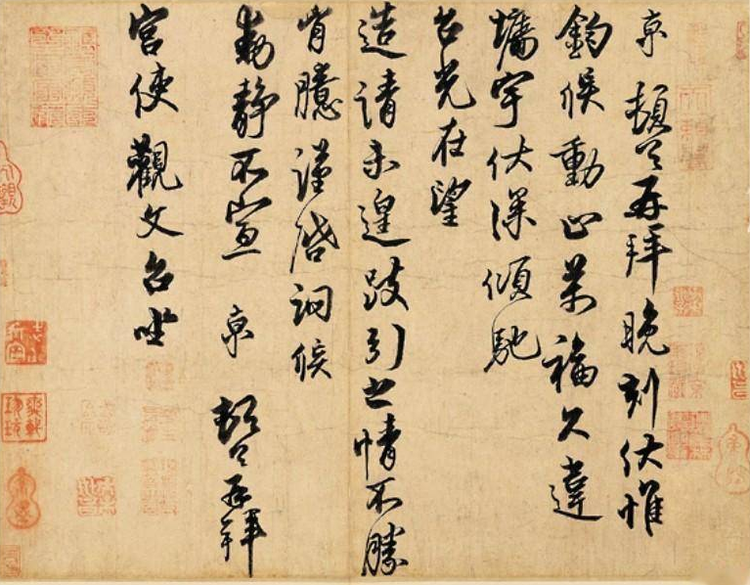 京頓首再拜晚刻伏惟
鈞候動止萬福久違
墉宇伏深傾馳
台光在望
造請未遑跂引之情不勝
胷臆謹啓詗候
動靜不宣 京 頓首再拜
宮使觀文台坐